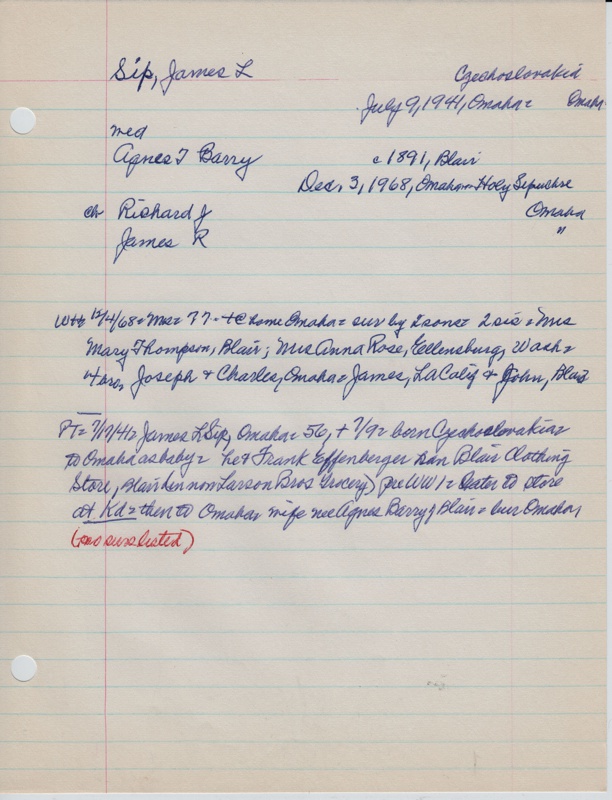 Sip, James L Czechoslovakia
July 9, 1941, Omaha= Omaha
med
Agnes T Barry c 1891, Blair
Dec, 3, 1968, Omaha== Holy Sepulchre
Omaha
ch Richard J "
James R
12/4/68= Mrs= 77= + @ home Omaha= sur by 2 sons= 2 sis= Mrs
Mary Thompson, Blair; Mrs Anna Rose, Ellensburg, Wash=
4 bros, Joseph & Charles, Omaha= James, LA Calif & John, Blair
PT= 7/17/41= James L Sip, Omaha= 56, + 7/9= born Czechoslovakia=
to Omaha as baby= he & Frank Effenberger ran Blair Clothing
Store, Blair (in now Larson Bros Grocery) pre WW 1= later to store
at Kd= then to Omaha, wife nee Agnes Barry of Blair= bur Omaha,
(no surs listed)